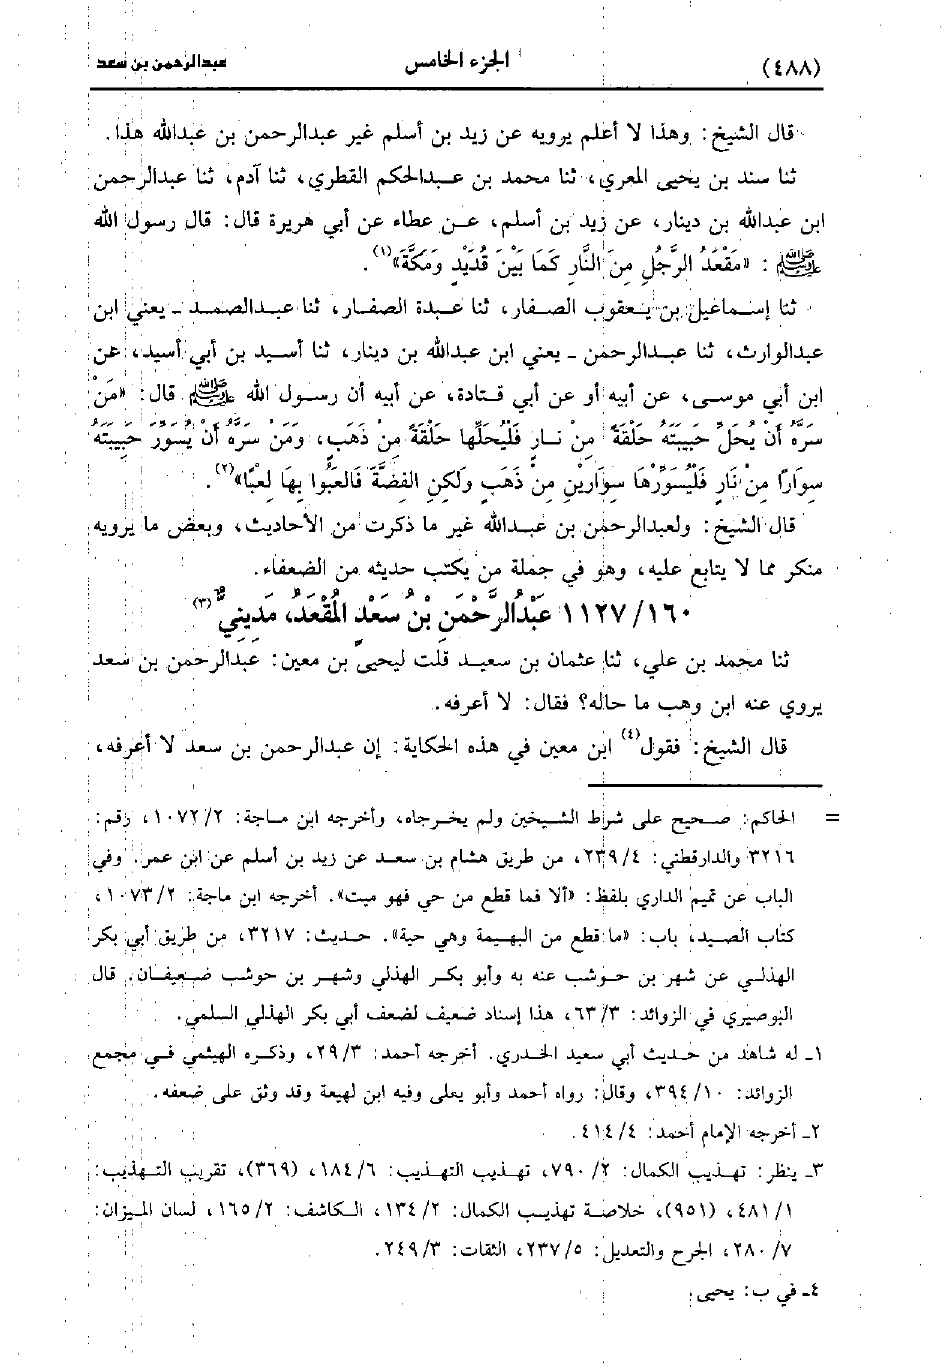 (٤٨٨) الجزء الخامس عبدالرحمن بن سعد
قال الشيخ: وهذا لا أعلم يرويه عن زيد بن أسلم غير عبدالرحمن بن عبدالله هذا.
ثنا سند بن يحيى المعري، ثنا محمد بن عبدالحكم القطري، ثنا آدم، ثنا عبدالرحمن
ابن عبدالله بن دينار، عن زيد بن أسلم، عن عطاء عن أبي هريرة قال: قال رسول الله
ﷺ: «مَقْعَدُ الرَّجُلِ مِنَ النَّارِ كَمَا بَيْنَ قُدَيْدٍ وَمَكَّةَ»(١).
ثنا إسماعيل بن يعقوب الصفار، ثنا عبدة الصفار، ثنا عبدالصمد ـ يعني ابن
عبدالوارث، ثنا عبدالرحمن ـ يعني ابن عبدالله بن دينار، ثنا أسيد بن أبي أسيد، عن
ابن أبي موسى، عن أبيه أو عن أبي قتادة، عن أبيه أن رسول الله ﷺ قال: «مَنْ
سَرَّهُ أَنْ يُحَلِّ حَبِيبَتَهُ حَلْقَةً مِنْ نَارٍ فَلْيُحَلِّهَا حَلْقَةً مِنْ ذَهَبٍ، وَمَنْ سَرَّهُ أَنْ يُسَوِّرَ حَبِيبَتَهُ
سِوَارًا مِنْ نَارٍ فَلْيُسَوِّرْهَا سِوَارَيْنِ مِنْ ذَهَبٍ وَلَكِنِ الفِضَّةَ فَالعَبُوا بِهَا لَعِبًا»(٢).
قال الشيخ: ولعبدالرحمن بن عبدالله غير ما ذكرت من الأحاديث، وبعض ما يرويه
منكر مما لا يتابع عليه، وهو في جملة من يكتب حديثه من الضعفاء.
١١٢٧/١٦٠ عَبْدُالرَّحْمَنِ بْنُ سَعْدٍ المُقْعَدُ، مَدِينِيٌّ(٣)
ثنا محمد بن علي، ثنا عثمان بن سعيد قلت ليحيى بن معين: عبدالرحمن بن سعد
يروي عنه ابن وهب ما حاله؟ فقال: لا أعرفه.
قال الشيخ: فقول(٤) ابن معين في هذه الحكاية: إن عبدالرحمن بن سعد لا أعرفه،
= الحاكم: صحيح على شراط الشيخين ولم يخرجاه، وأخرجه ابن ماجة: ١٠٧٢/٢، رقم:
٣٢١٦ والدارقطني: ٢٣٩/٤، من طريق هشام بن سعد عن زيد بن أسلم عن ابن عمر. وفي
الباب عن تميم الداري بلفظ: «ألا فما قطع من حي فهو ميت». أخرجه ابن ماجة: ١٠٧٣/٢،
كتاب الصيد، باب: «ما قطع من البهيمة وهي حية». حديث: ٣٢١٧، من طريق أبي بكر
الهذلي عن شهر بن حوشب عنه به وأبو بكر الهذلي وشهر بن حوشب ضعيفان. قال
البوصيري في الزوائد: ٦٣/٣، هذا إسناد ضعيف لضعف أبي بكر الهذلي السلمي.
١ـ له شاهد من حديث أبي سعيد الخدري. أخرجه أحمد: ٢٩/٣، وذكره الهيثمي في مجمع
الزوائد: ٣٩٤/١٠، وقال: رواه أحمد وأبو يعلى وفيه ابن لهيعة وقد وثق على ضعفه.
٢ـ أخرجه الإمام أحمد: ٤١٤/٤.
٣ـ ينظر: تهذيب الكمال: ٧٩٠/٢، تهذيب التهذيب: ١٨٤/٦، (٣٦٩)، تقريب التهذيب:
٤٨١/١، (٩٥١)، خلاصة تهذيب الكمال: ١٣٤/٢، الكاشف: ١٦٥/٢، لسان الميزان:
٢٨٠/٧، الجرح والتعديل: ٢٣٧/٥، الثقات: ٢٤٩/٣.
٤ـ في ب: يحيى.